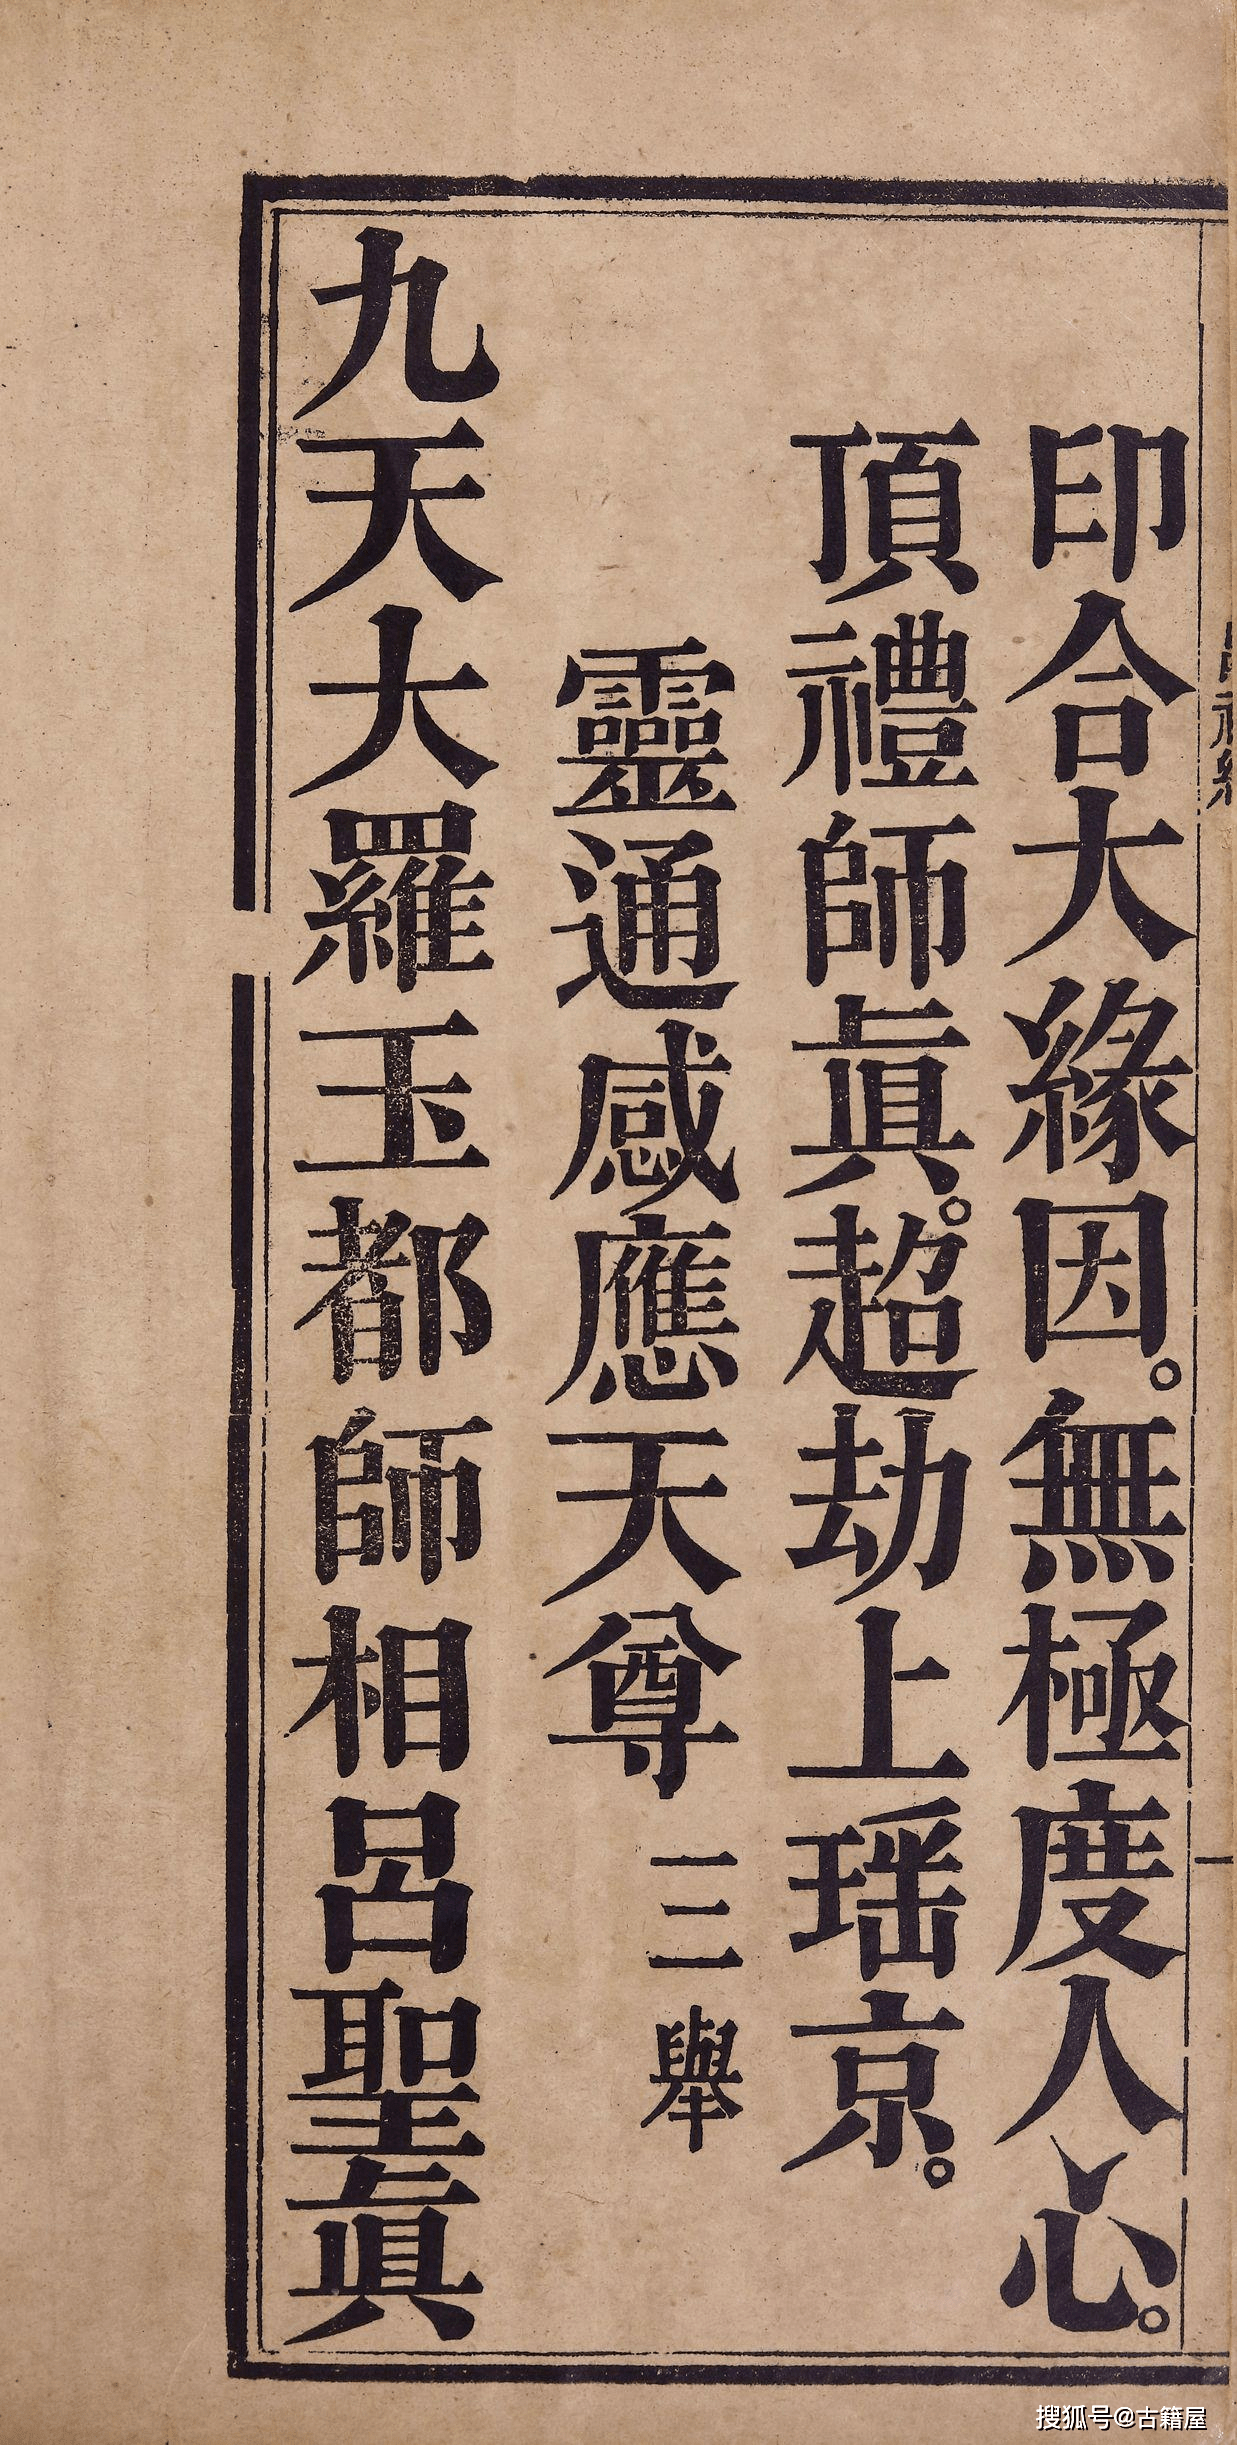 印合大緣因。無極度人心。
頂禮師眞。超劫上瑶京。
靈通感應天尊 三舉
九天大羅玉都師相呂聖眞
一
搜狐号@古籍屋